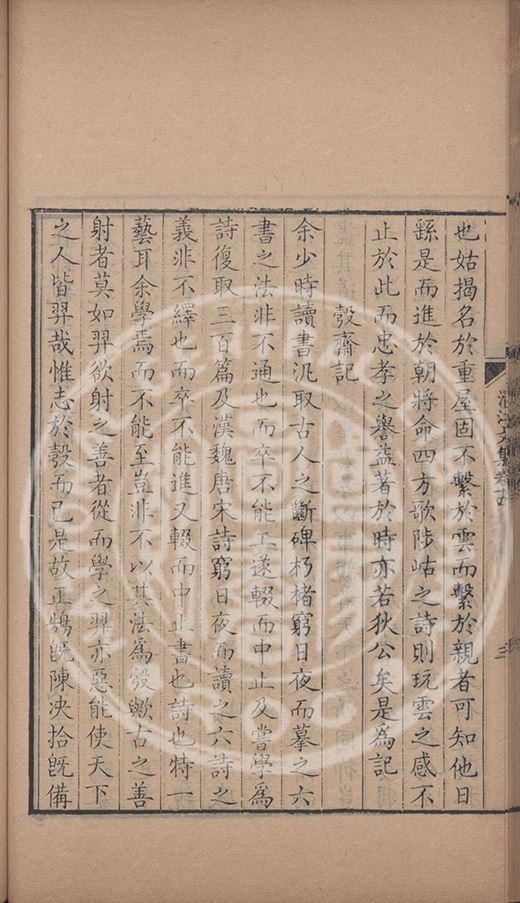 也姑揭名於重屋固不繫於雲而繫於親者可知他日
繇是而進於朝將命四方歌陟岵之詩則玩雲之感不
止於此而忠孝之譽益著於時亦若狄公矣是為記
彀齋記
余少時讀書汎取古人之斷碑朽楮窮日夜而摹之六
書之法非不通也而卒不能工遂輟而中止及嘗學為
詩復取三百篇及漢魏唐宋詩窮日夜而讀之六詩之
義非不繹也而卒不能進又輟而中止書也詩也特一
藝耳余學焉而不能至豈非不以其法為彀歟古之善
射者莫如羿欲射之善者從而學之羿亦惡能使天下
之人皆羿哉惟志於彀而已是故正鵠既陳决拾既備